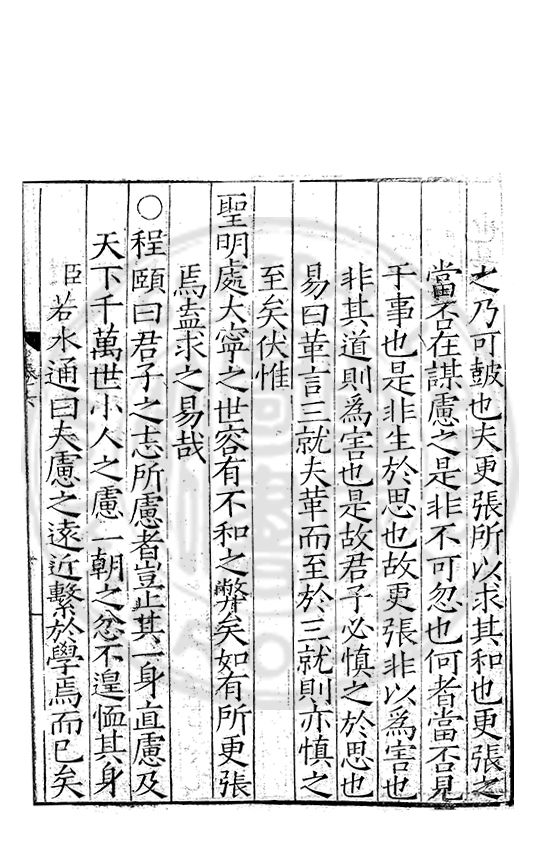 之乃可皷也夫更張所以求其和也更張之
當否在謀慮之是非不可忽也何者當否見
于事也是非生於思也故更張非以為害也
非其道則為害也是故君子必慎之於思也
易曰革言三就夫革而至於三就則亦慎之
至矣伏惟
聖明處大寧之世容有不和之弊矣如有所更張
焉盍求之易哉
○程頤曰君子之志所慮者豈止其一身直慮及
天下千萬世小人之慮一朝之忿不遑恤其身
臣若水通曰夫慮之遠近繫於學焉而已矣